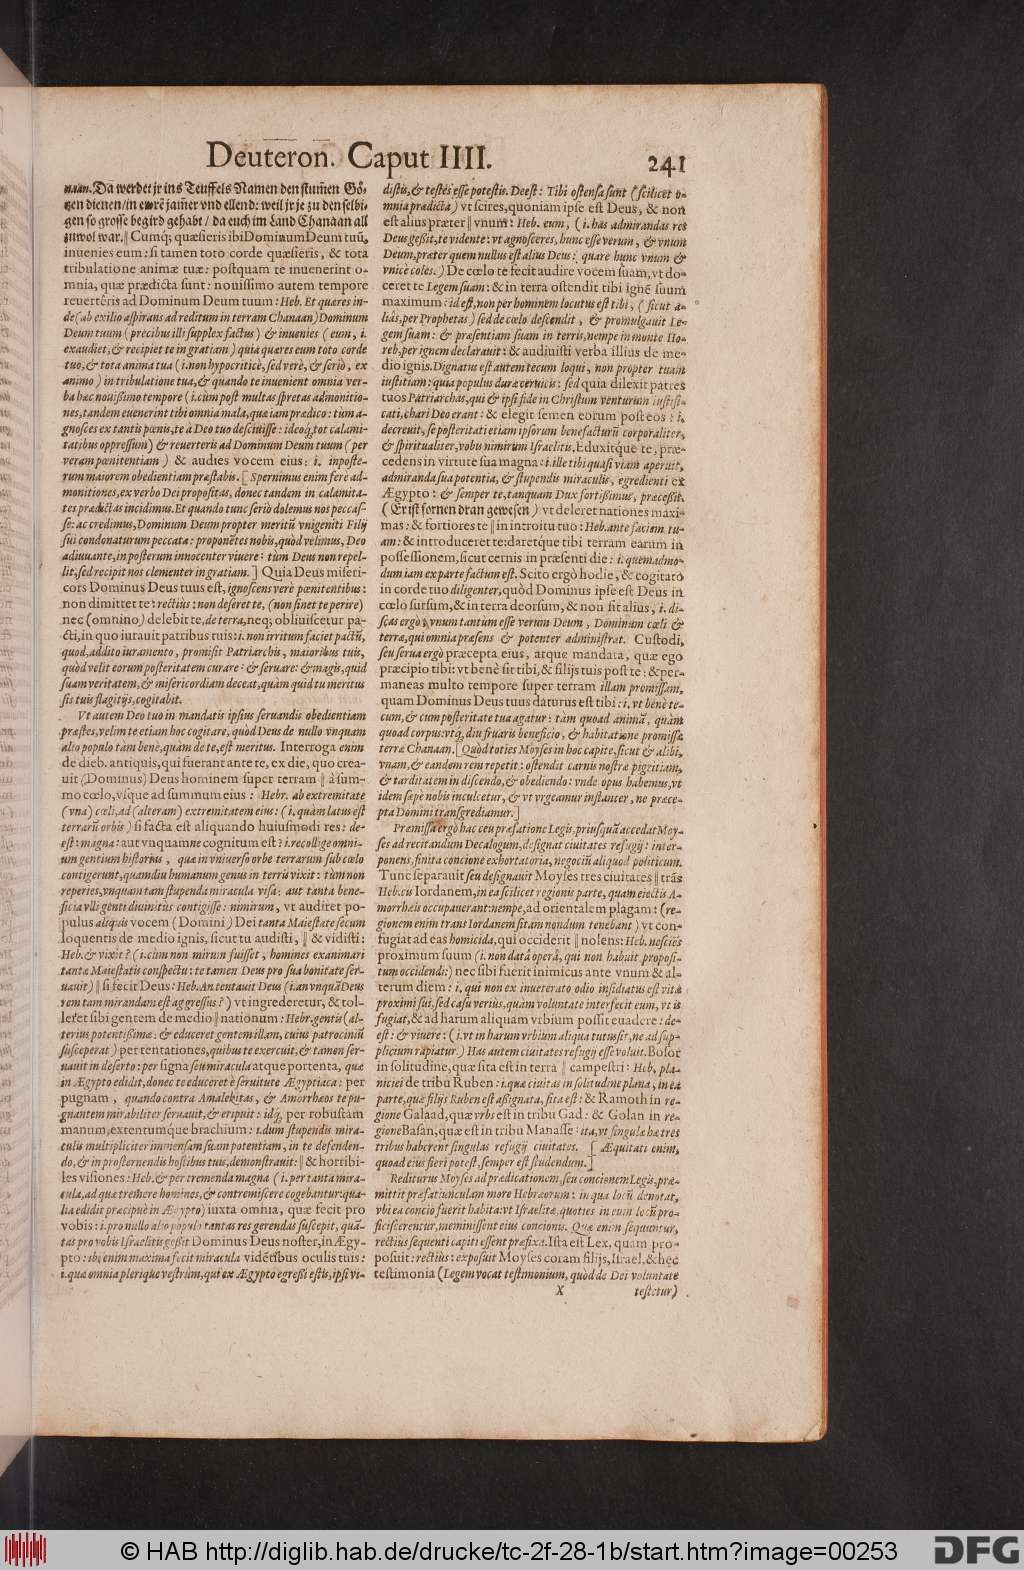 Deuteron. Caput IIII. 241
naan. Dã werdet jr ins Teuffels Namen den stum̃en Gö-
tzen dienen/in ewrē jam̃er vnd ellend: weil jr je zu denselbi-
gen so grosse begird gehabt / da euch im Land Chanaan all
zuwol war. ‖ Cumq; quæsieris ibi Dominum Deum tuũ,
inuenies eum: si tamen toto corde quæsieris, & tota
tribulatione animæ tuæ: postquam te inuenerint o-
mnia, quæ prædicta sunt: nouissimo autem tempore
reuertēris ad Dominum Deum tuum: Heb. Et quæres in-
de (ab exilio aspirans ad reditum in terram Chanaan) Dominum
Deum tuum (precibus illi supplex factus) & inuenies (eum, i.
exaudiet, & recipiet te in gratiam) quia quæres eum toto corde
tuo, & tota anima tua (i. non hypocriticè, sed verè, & seriò, ex
animo) in tribulatione tua, & quando te inuenient omnia ver-
ba hæc nouissimo tempore (i. cùm post multas spretas admonitio-
nes, tandem euenerint tibi omnia mala, quæ iam prædico: tùm a-
gnosces ex tantis pœnis, te à Deo tuo desciuisse: ideoq́, tot calami-
tatibus oppressum) & reuerteris ad Dominum Deum tuum (per
veram pœnitentiam) & audies vocem eius: i. in poste-
rum maiorem obedientiam præstabis. [Spernimus enim ferè ad-
monitiones, ex verbo Dei propositas, donec tandem in calamita-
tes prædictas incidimus. Et quando tunc seriò dolemus nos peccas-
se: ac credimus, Dominum Deum propter meritũ vnigeniti Filij
sui condonaturum peccata: proponẽtes nobis, quòd velimus, Deo
adiuuante, in posterum innocenter viuere: tùm Deus non repel-
lit, sed recipit nos clementer in gratiam.] Quia Deus miseri-
cors Dominus Deus tuus est, ignoscens verè pœnitentibus:
non dimittet te: rectiùs: non deseret te, (non sinet te perire)
nec (omnino) delebit te, de terra, neq; obliuiscetur pa-
cti, in quo iurauit patribus tuis: i. non irritum faciet pactũ,
quod, addito iuramento, promisit Patriarchis, maioribus tuis,
quòd velit eorum posteritatem curare: & seruare: & magis, quid
suam veritatem, & misericordiam deceat, quàm quid tu meritus
sis tuis flagitijs, cogitabit.
Vt autem Deo tuo in mandatis ipsius seruandis obedientiam
præstes, velim te etiam hoc cogitare, quòd Deus de nullo vnquam
alio populo tàm benè, quàm de te, est meritus. Interroga enim
de dieb. antiquis, qui fuerant ante te, ex die, quo crea-
uit (Dominus) Deus hominem super terram ‖ à sum-
mo cœlo, vsque ad summum eius: Hebr. ab extremitate
(vna) cœli, ad (alteram) extremitatem eius: (i. quàm latus est
terrarũ orbis) si facta est aliquando huiusmodi res: de-
est: magna: aut vnquamne cognitum est: i. recollige omni-
um gentium historias, quæ in vniuerso orbe terrarum sub cœlo
contigerunt, quamdiu humanum genus in terris vixit: tùm non
reperies, vnquam tam stupenda miracula visa: aut tanta bene-
ficia vlli genti diuinitùs contigisse: nimirum, vt audiret po-
pulus aliquis vocem (Domini) Dei tanta Maiestate secum
loquentis de medio ignis, sicut tu audisti, ‖ & vidisti:
Heb. & vixit? (i. cùm non mirum fuisset, homines exanimari
tanta Maiestatis conspectu: te tamen Deus pro sua bonitate ser-
uauit) ‖ si fecit Deus: Heb. An tentauit Deus (i. an vnquã Deus
rem tam mirandam est aggressus?) vt ingrederetur, & tol-
leret sibi gentem de medio ‖ nationum: Hebr. gentis (al-
terius potentissimæ: & educeret gentem illam, cuius patrociniũ
susceperat) per tentationes, quibus te exercuit, & tamen ser-
uauit in deserto: per signa seu miracula atque portenta, quæ
in Ægypto edidit, donec te educeret è seruitute Ægyptiaca: per
pugnam, quando contra Amalekitas, & Amorrhæos te pu-
gnantem mirabiliter seruauit, & eripuit: idq́, per robustam
manum, extentumque brachium: i. dum stupendis mira-
culis multipliciter immensam suam potentiam, in te defenden-
do, & in prosternendis hostibus tuis, demonstrauit: ‖ & horribi-
les visiones: Heb. & per tremenda magna (i. per tanta mira-
cula, ad quæ tremere homines, & contremiscere cogebantur: qua-
lia edidit præcipuè in Ægypto) iuxta omnia, quæ fecit pro
vobis: i. pro nullo alio populo tantas res gerendas suscepit, quã-
tas pro vobis Israelitis gessit Dominus Deus noster, in Ægy-
pto: ibi enim maxima fecit miracula vidẽtibus oculis tuis:
i. quæ omnia plerique vestrûm, qui ex Ægypto egressi estis, ipsi vi-
distis, & testes esse potestis. Deest: Tibi ostensa sunt (scilicet o-
mnia prædicta) vt scires, quoniam ipse est Deus, & non
est alius præter ‖ vnum: Heb. eum, (i. has admirandas res
Deus gessit, te vidente: vt agnosceres, hunc esse verum, & vnum
Deum, præter quem nullus est alius Deus: quare hunc vnum &
vnicè coles.) De cœlo te fecit audire vocem suam, vt do-
ceret te Legem suam: & in terra ostendit tibi ignē suum
maximum: id est, non per hominem locutus est tibi, (sicut a-
liâs, per Prophetas) sed de cœlo descendit, & promulgauit Le-
gem suam: & præsentiam suam in terris, nempe in monte Ho-
reb, per ignem declarauit: & audiuisti verba illius de me-
dio ignis. Dignatus est autem tecum loqui, non propter tuam
iustitiam: quia populus duræ ceruicis: sed quia dilexit patres
tuos Patriarchas, qui & ipsi fide in Christum venturum iustifi-
cati, chari Deo erant: & elegit semen eorum post eos: i.
decreuit, se posteritati etiam ipsorum benefacturũ corporaliter,
& spiritualiter, vobis nimirum Israelitis. Eduxitque te, præ-
cedens in virtute sua magna: i. ille tibi quasi viam aperuit,
admiranda sua potentia, & stupendis miraculis, egredienti ex
Ægypto: & semper te, tanquam Dux fortissimus, præcessit.
(Er ist fornen dran gewesen) vt deleret nationes maxi-
mas: & fortiores te ‖ in introitu tuo: Heb. ante faciem tu-
am: & introduceret te: daretque tibi terram earum in
possessionem, sicut cernis in præsenti die: i. quemadmo-
dum iam ex parte factum est. Scito ergò hodie, & cogitato
in corde tuo diligenter, quòd Dominus ipse est Deus in
cœlo sursum, & in terra deorsum, & non sit alius, i. di-
scas ergò, vnum tantùm esse verum Deum, Dominum cœli &
terræ, qui omnia præsens & potenter administrat. Custodi,
seu serua ergò præcepta eius, atque mandata, quæ ego
præcipio tibi: vt benè sit tibi, & filijs tuis post te: & per-
maneas multo tempore super terram illam promissam,
quam Dominus Deus tuus daturus est tibi: i. vt benè te-
cum, & cum posteritate tua agatur: tàm quoad animã, quàm
quoad corpus: vtq́, diu fruaris beneficio, & habitatione promissæ
terræ Chanaan. [Quòd toties Moyses in hoc capite, sicut & alibi,
vnam, & eandem rem repetit: ostendit carnis nostræ pigritiam,
& tarditatem in discendo, & obediendo: vnde opus habemus, vt
idem sæpè nobis inculcetur, & vt vrgeamur instanter, ne præce-
pta Domini transgrediamur.]
Præmissa ergò hac ceu præfatione Legis, priusquã accedat Moy-
ses ad recitandum Decalogum, designat ciuitates refugij: inter-
ponens, finita concione exhortatoria, negociũ aliquod politicum.
Tunc separauit seu designauit Moyses tres ciuitates ‖ trãs
Heb. cis Iordanem, in ea scilicet regionis parte, quam eiectis A-
morrhæis occupauerant: nempe, ad orientalem plagam: (re-
gionem enim trans Iordanem sitam nondum tenebant) vt con-
fugiat ad eas homicida, qui occiderit ‖ nolens: Heb. nesciēs
proximum suum (i. non datâ operâ, qui non habuit proposi-
tum occidendi:) nec sibi fuerit inimicus ante vnum & al-
terum diem: i. qui non ex inueterato odio insidiatus est vitæ
proximi sui, sed casu verius, quàm voluntate interfecit eum, vt is
fugiat, & ad harum aliquam vrbium possit euadere: de-
est: & viuere: (i. vt in harum vrbium aliqua tutus sit, ne ad sup-
plicium rapiatur.) Has autem ciuitates refugij esse voluit. Bosor
in solitudine, quæ sita est in terra ‖ campestri: Heb. pla-
niciei de tribu Ruben: i. quæ ciuitas in solitudine plana, in ea
parte, quæ filijs Ruben est assignata, sita est: & Ramoth in re-
gione Galaad, quæ vrbs est in tribu Gad: & Golan in re-
gione Basan, quæ est in tribu Manasse: ita, vt singulæ hæ tres
tribus haberent singulas refugij ciuitates. [Æquitati enim,
quoad eius fieri potest, semper est studendum.]
Rediturus Moyses ad prædicationem, seu concionem Legis, præ-
mittit præfatiunculam more Hebræorum: in qua locũ denotat,
vbi ea concio fuerit habita: vt Israelitæ, quoties in eum locũ pro-
ficiscerentur, meminissent eius concionis. Quæ enim sequuntur,
rectiùs sequenti capiti essent præfixa. Ista est Lex, quam pro-
posuit: rectiùs: exposuit Moyses coram filijs, Israel, & hęc
testimonia (Legem vocat testimonium, quòd de Dei voluntate
X testetur)
© HAB http://diglib.hab.de/drucke/tc-2f-28-1b/start.htm?image=00253
DFG